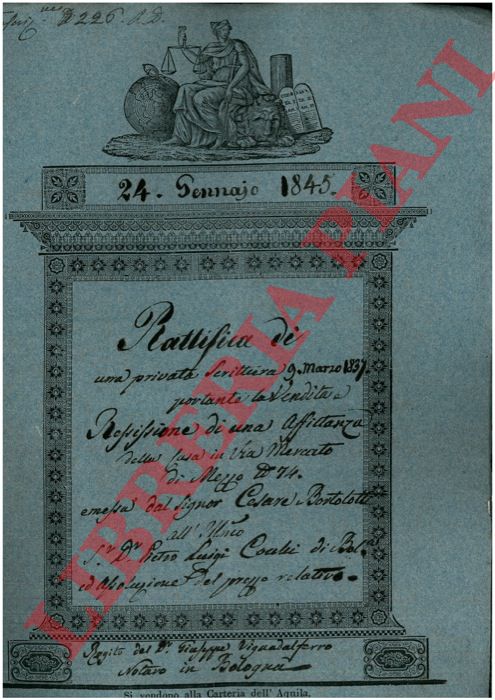 N. 226. A.D.
24. Gennajo 1845.
Rattifica di
una privata Scrittura 9. Marzo 1837.
portante la Vendita e
Ressissione di una Affittanza
della Casa in Via Mercato
di Mezzo N 74.
emessa dal Signor Cesare Bortolotti
all'
Sr. Dr. Pietro Luigi di Bol.
ed Assoluzione del prezzo relativo.
Rogito del Dr. Giuseppe Viguadalferro
Notaro in Bologna
Si vendono alla Carteria dell' Aquila.
LIBRERIA PIANI